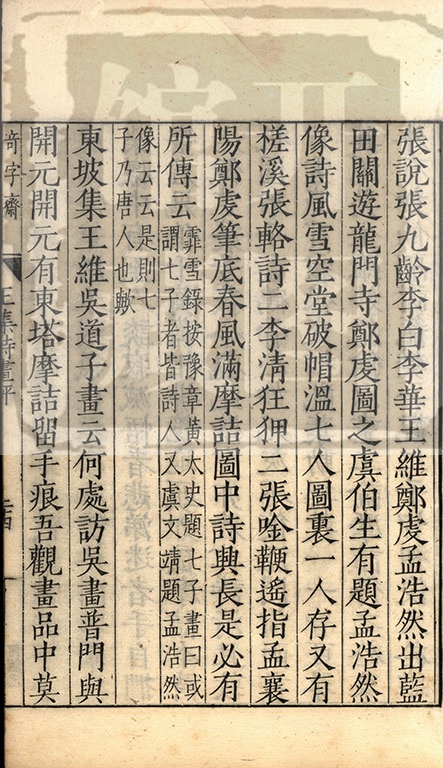 張說張九齡李白李華王維鄭虔孟浩然出藍
田關遊龍門寺鄭虔圖之虞伯生有題孟浩然
像詩風雪空堂破帽溫七人圖裏一人存又有
槎溪張輅詩二李清狂狎二張吟鞭遙指孟襄
陽鄭虔筆底春風滿摩詰圖中詩興長是必有
所傳云
霏雪錄按豫章黃太史題七子畫曰或
謂七子者皆詩人又虞文靖題孟浩然
像云云是則七
子乃唐人也歟
東坡集王維吳道子畫云何處訪吳畫普門與
開元開元有東塔摩詰留手痕吾觀畫品中莫
奇字齋
王集詩畫平